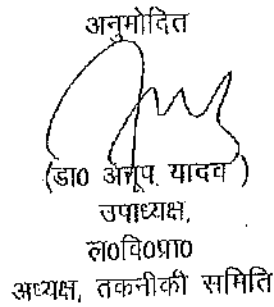 अनुमोदित
(डा० अनूप यादव )
उपाध्यक्ष,
ल०वि०प्रा०
अध्यक्ष, तकनीकी समिति